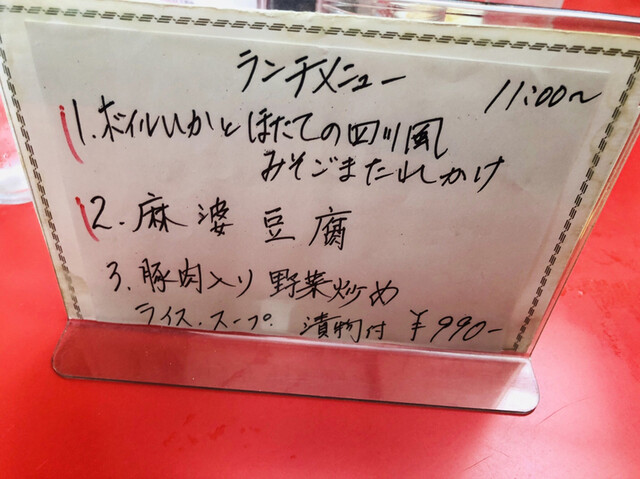 ランチメニュー
11:00~
1. ボイルいかとほたての四川風
みそごまだれかけ
2. 麻婆豆腐
3. 豚肉入り野菜炒め
ライス・スープ 漬物付 ¥990-